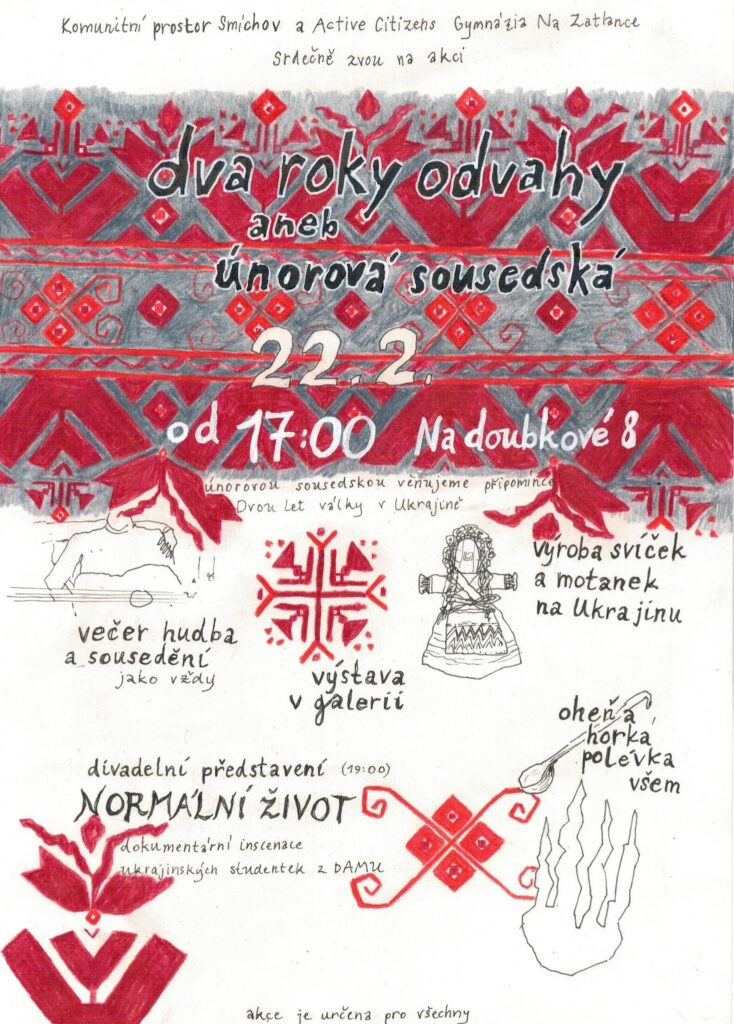 Komunitní prostor Smíchov a Active Citizens Gymnázia Na Zatlance
Srdečně zvou na akci
dva roky odvahy
aneb
únorová sousedská
22.2.
od 17:00 Na doubkové 8
únorovou sousedskou věnujeme připomínce
Dvou let války v Ukrajině
večer hudba
a sousedění
jako vždy
výstava
v galerii
výroba svíček
a motanek
na Ukrajinu
oheň a
horká
polévka
všem
divadelní představení (19:00)
NORMÁLNÍ ŽIVOT
dokumentární inscenace
ukrajinských studentek z DAMU
akce je určena pro všechny